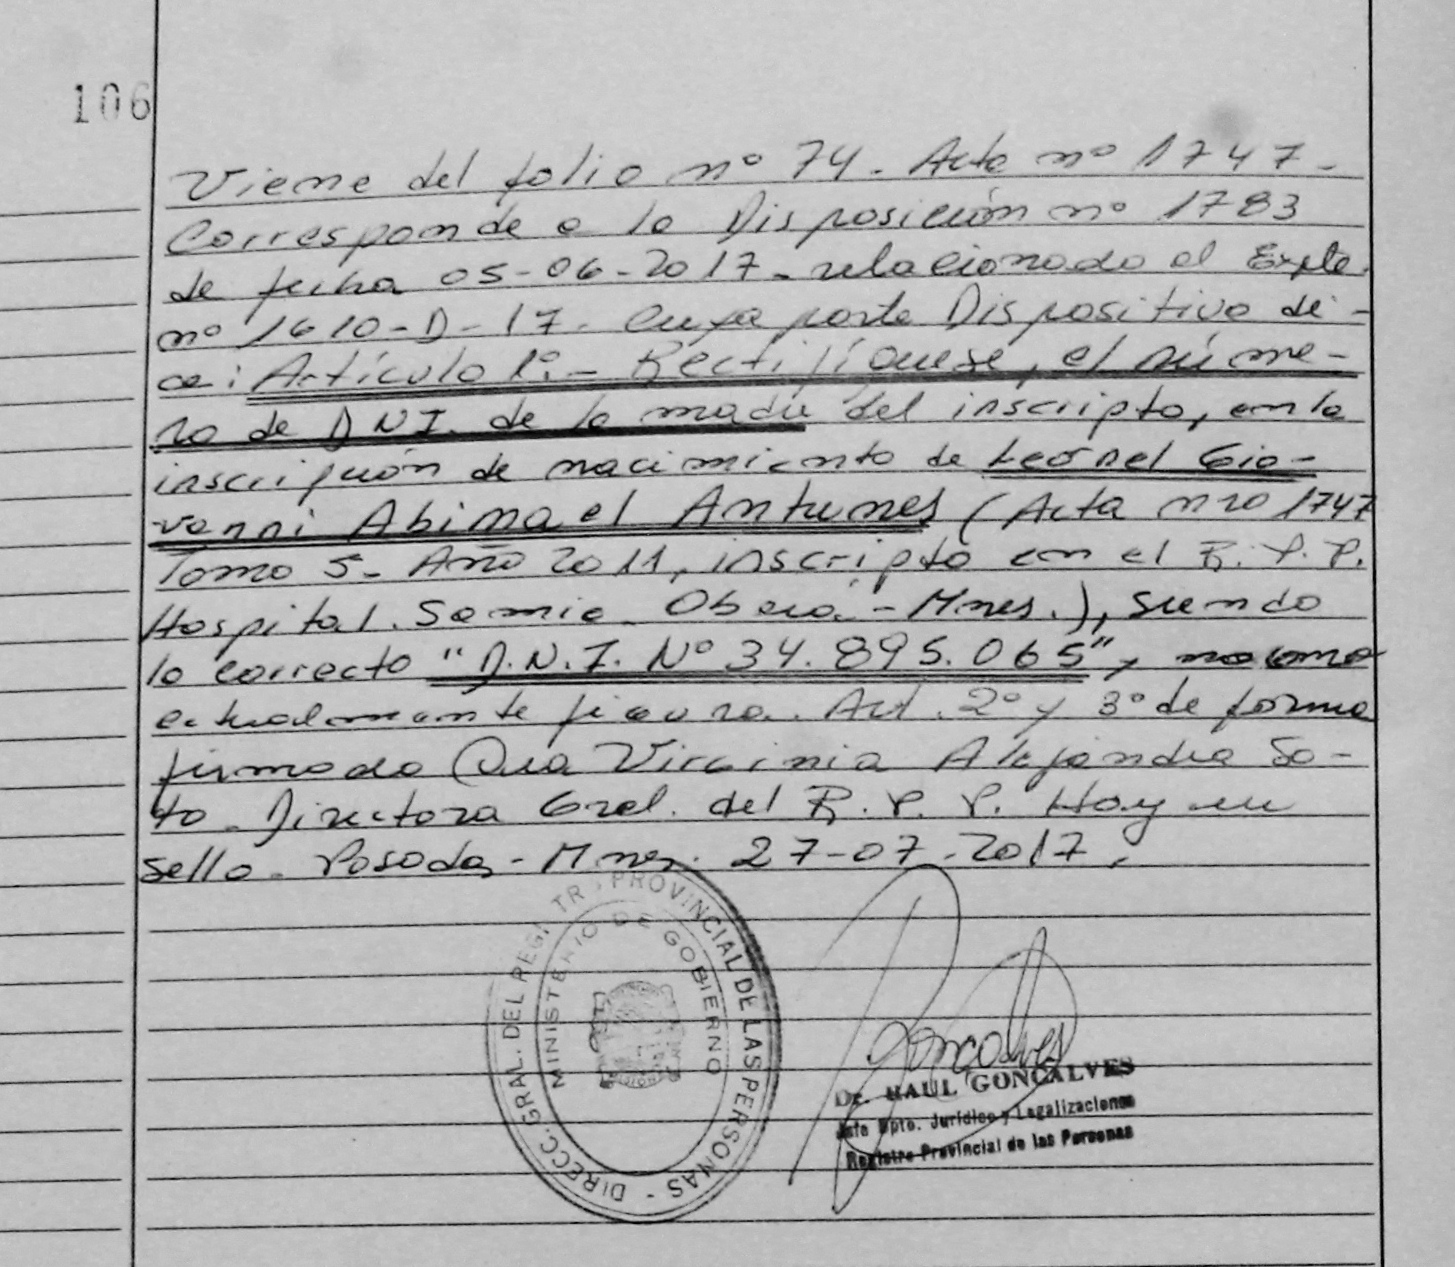 106
Viene del folio nº 74. Acta nº 1747-
Corresponde a la Disposición nº 1783
de fecha 05-06-2017- relacionado al Expte.
nº 1610-D-17. Cuya parte Dispositiva di-
ce: Artículo 1º:- Rectifíquese, el núme-
ro de DNI. de la madre del inscripto, en la
inscripción de nacimiento de Leonel Gio-
vanni Abimael Antunes (Acta nro 1747
Tomo 5- Año 2011, inscripto en el R.P.P.
Hospital. Samic. Oberá.- Mnes.), siendo
lo correcto "D.N.I. Nº 34.895.065", no como
actualmente figura. Art. 2º y 3º de forma
firmado Dra Virginia Alejandra So-
to. Directora Gral. del R.P.P. Hay un
sello. Posadas- Mnes. 27-07-2017.
DIRECC. GRAL. DEL REGISTR PROVINCIAL DE LAS PERSONAS -
MINISTERIO DE GOBIERNO
Goncalves
Dr. RAUL GONCALVES
Jefe Dpto. Jurídico y Legalizaciones
Registro Provincial de las Personas